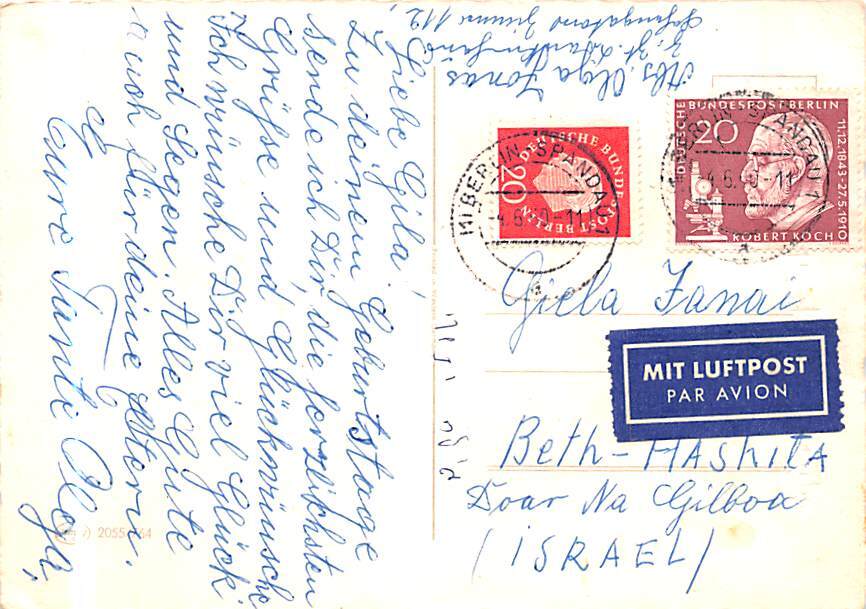 Liebe Gila!
Zu deinem Geburtstage
sende ich Dir, die herzlichsten
Grüße und Glückwünsche
Ich wünsche Dir viel Glück
und Segen. Alles Gute
auch für deine Eltern.
Eure Tante Olga,
Abs. Olga Jonas
112,
DEUTSCHE BUNDESPOST BERLIN
20
(1) BERLIN-SPANDAU 1
-4.6.60-11
DEUTSCHE BUNDESPOST BERLIN
20
11.12.1843-27.5.1910
ROBERT KOCH
BERLIN-SPANDAU 1
-4.6.60-11
Giela Janai
MIT LUFTPOST
PAR AVION
Beth-HAshita
Doar Na Gilboa
(ISRAEL)
2055/64